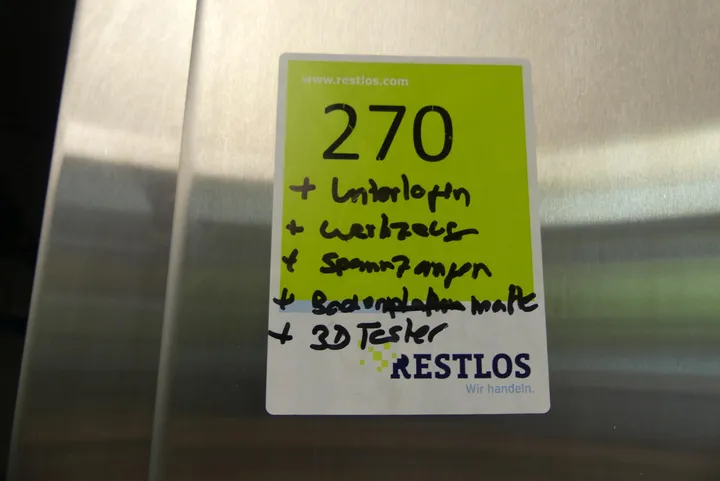 www.restlos.com
270
+ Unterlagen
+ Werkzeug
+ Spannzangen
+ Bodenplatten matte
+ 3D Taster
RESTLOS
Wir handeln.